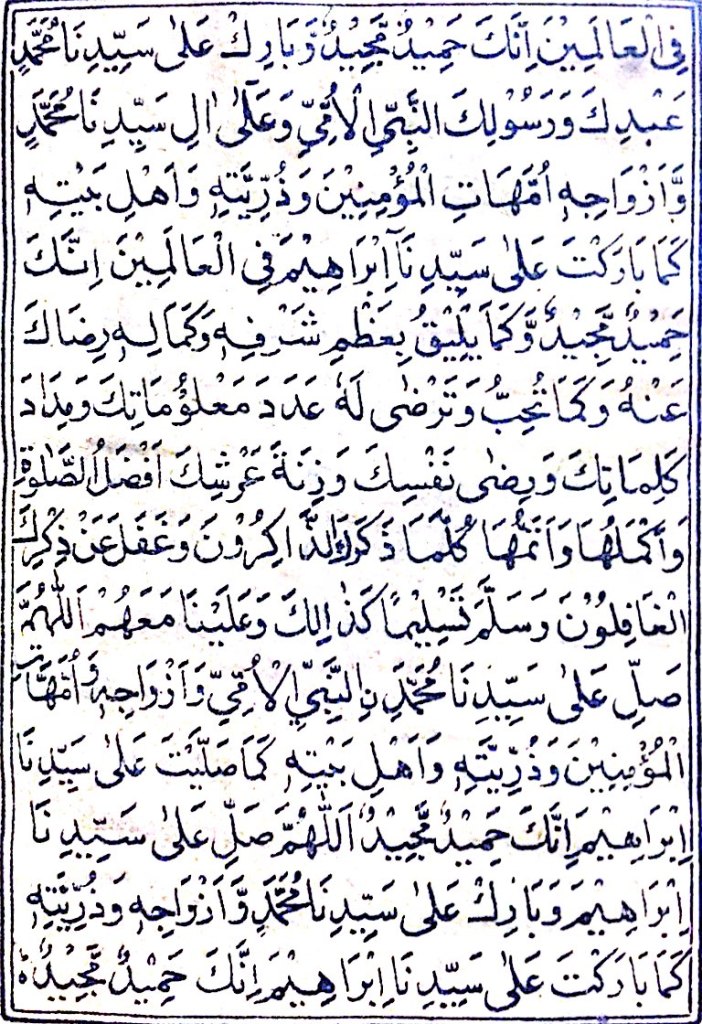 فِى الْعَالَمِيْنَ اِنَّكَ حَمِيْدٌ مَّجِيْدٌ وَّبَارِكْ عَلٰى سَيِّدِنَا مُحَمَّدٍ
عَبْدِكَ وَرَسُوْلِكَ النَّبِيِّ الْاُمِّيِّ وَعَلٰٓى اٰلِ سَيِّدِنَا مُحَمَّدٍ
وَّاَزْوَاجِهٖ اُمَّهَاتِ الْمُؤْمِنِيْنَ وَذُرِّيَّتِهٖ وَاَهْلِ بَيْتِهٖ
كَمَا بَارَكْتَ عَلٰى سَيِّدِنَآ اِبْرَاهِيْمَ فِى الْعَالَمِيْنَ اِنَّكَ
حَمِيْدٌ مَّجِيْدٌ وَّكَمَا يَلِيْقُ بِعَظْمِ شَرْفِهٖ وَكَمَالِهٖ رِضَاكَ
عَنْهُ وَكَمَا تُحِبُّ وَتَرْضٰى لَهٗ عَدَدَ مَعْلُوْمَاتِكَ وَمِدَادَ
كَلِمَاتِكَ وَرِضٰى نَفْسِكَ وَزِنَةَ عَرْشِكَ اَفْضَلُ الصَّلٰوةِ
وَاَكْمَلُهَا وَاَتَمُّهَا كُلَّمَا ذَكَرَكَ الذَّاكِرُوْنَ وَغَفَلَ عَنْ ذِكْرِكَ
الْغَافِلُوْنَ وَسَلَّمَ تَسْلِيْمًا كَذٰالِكَ وَعَلَيْنَا مَعَهُمْ اَللّٰهُمَّ
صَلِّ عَلٰى سَيِّدِنَا مُحَمَّدِ نِالنَّبِيِّ الْاُمِّيِّ وَاَزْوَاجِهٖ وَاُمَّهَاتِ
الْمُؤْمِنِيْنَ وَذُرِّيَّتِهٖ وَاَهْلِ بَيْتِهٖ كَمَا صَلَّيْتَ عَلٰى سَيِّدِنَا
اِبْرَاهِيْمَ اِنَّكَ حَمِيْدٌ مَّجِيْدٌ اَللّٰهُمَّ صَلِّ عَلٰى سَيِّدِنَا
اِبْرَاهِيْمَ وَبَارِكْ عَلٰى سَيِّدِنَا مُحَمَّدٍ وَّاَزْوَاجِهٖ وَذُرِّيَّتِهٖ
كَمَا بَارَكْتَ عَلٰى سَيِّدِنَا اِبْرَاهِيْمَ اِنَّكَ حَمِيْدٌ مَّجِيْدٌ